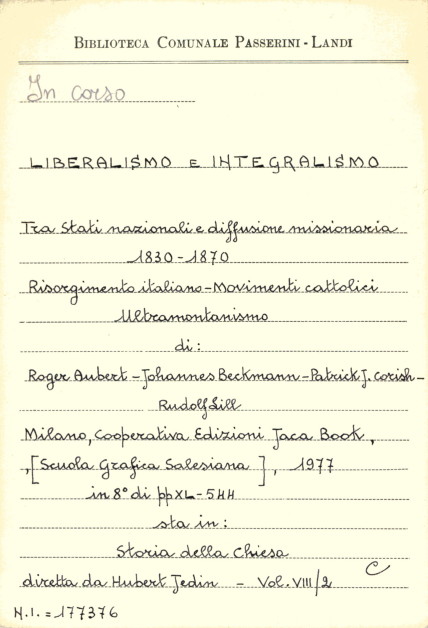 BIBLIOTECA COMUNALE PASSERINI - LANDI
In corso
LIBERALISMO E INTEGRALISMO
Tra Stati nazionali e diffusione missionaria
1830-1870
Risorgimento italiano - Movimenti cattolici
Ultramontanismo
di:
Roger Aubert - Johannes Beckmann - Patrick J. Corish -
Rudolf Lill
Milano, Cooperativa Edizioni Jaca Book,
,[Scuola Grafica Salesiana], 1977
in 8° di pp XL-544
sta in:
Storia della Chiesa
C
diretta da Hubert Jedin - Vol. VIII/2
N.I. = 177376